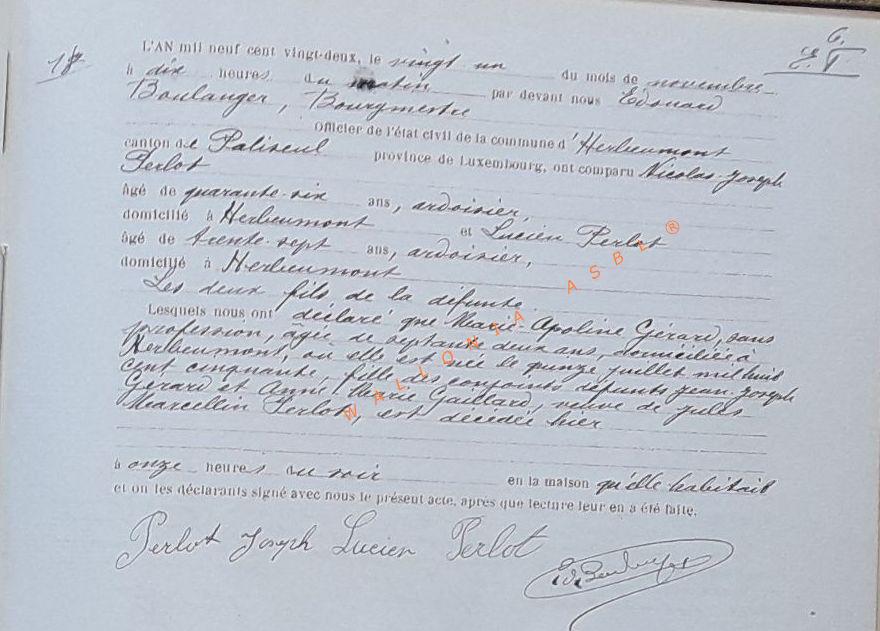 18
6.
L'AN mil neuf cent vingt-deux, le vingt un du mois de novembre
à dix heures du matin par devant nous Edouard
Boulanger, Bourgmestre
Officier de l'état civil de la commune d'Herbeumont
canton de Paliseul province de Luxembourg, ont comparu Nicolas-Joseph
Perlot
âgé de quarante-six ans, ardoisier,
domicilié à Herbeumont et Lucien Perlot
âgé de trente-sept ans, ardoisier,
domicilié à Herbeumont
Les deux fils de la défunte
Lesquels nous ont déclaré que Marie-Apoline Gérard, sans
profession, âgée de septante deux ans, domiciliée à
Herbeumont, où elle est née le quinze juillet mil huit
cent cinquante, fille des conjoints défunts Jean-Joseph
Gérard et Anne-Marie Gaillard, veuve de Jules
Marcellin Perlot, est décédée hier
à onze heures du soir en la maison qu'elle habitait
et on les déclarants signé avec nous le présent acte, après que lecture leur en a été faite.
Perlot Joseph Lucien Perlot
Ed. Boulanger
WALLONIA ASBL ®